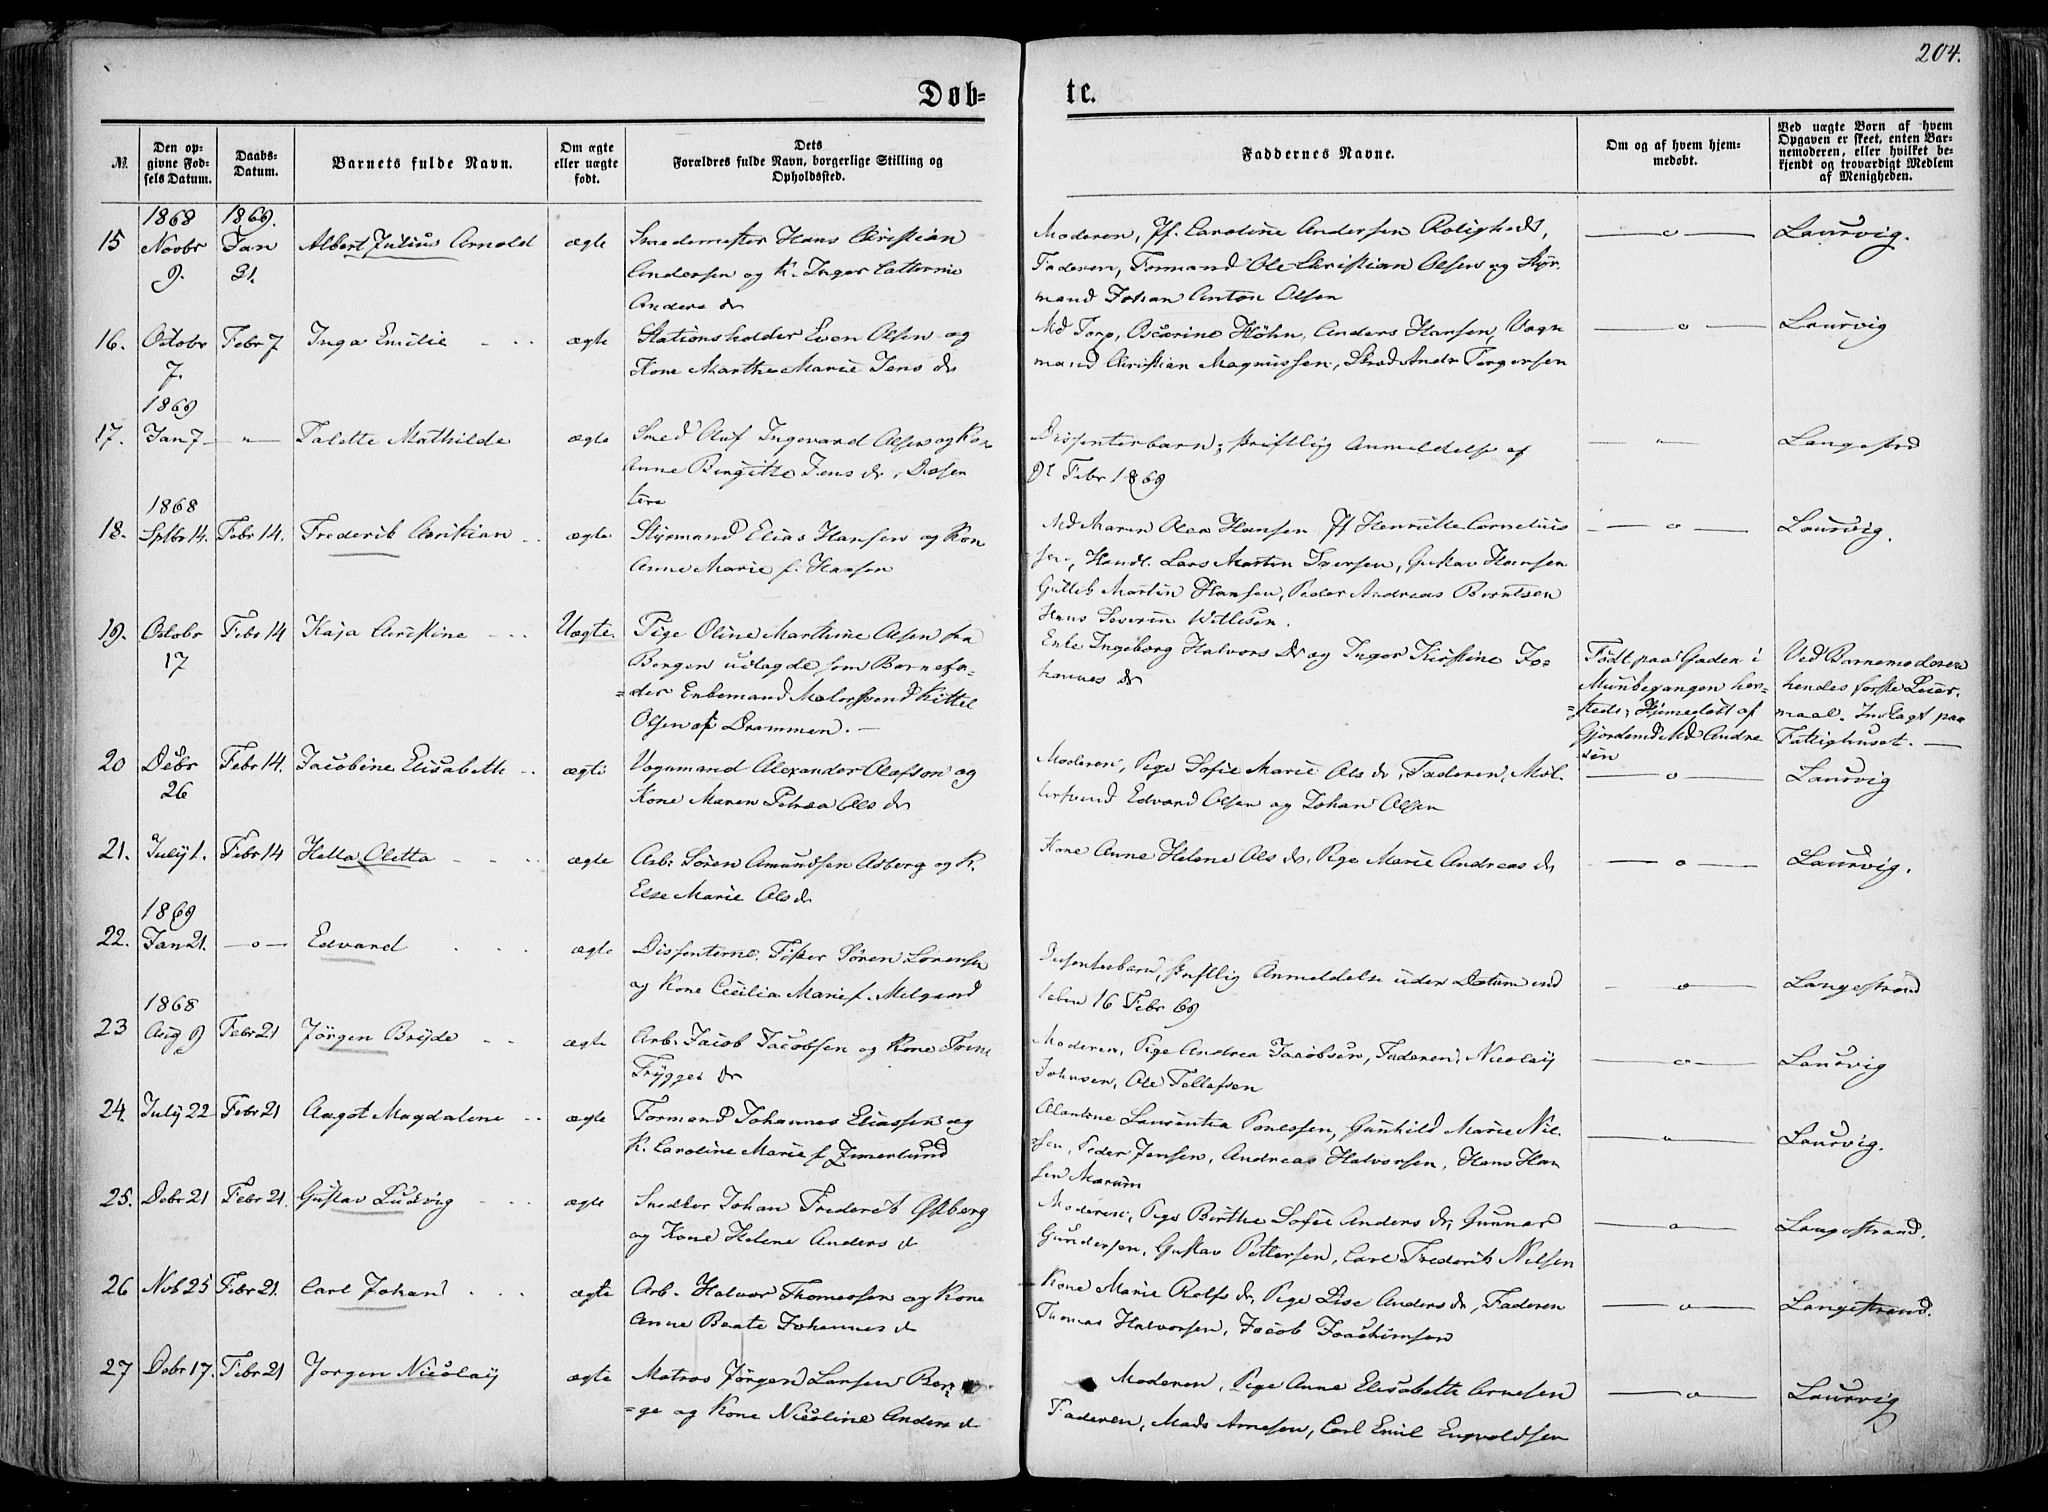 204.
Døb=
te.
№
Den op=
givne Fød=
sels Datum.
Daabs=
Datum.
Barnets fulde Navn.
Om ægte
eller uægte
født.
Dets
Forældres fulde Navn, borgerlige Stilling og
Opholdssted.
Faddernes Navne.
Om og af hvem hjem=
medøbt.
Ved uægte Børn af hvem
Opgaven er skeet, enten Bar=
nemoderen, eller hvilket be=
kjendt og troværdigt Medlem
af Menigheden.
1868
1869.
15 Novbr Jan Albert Julius Arnold ægte Smedemester Hans Christian Moderen, Jf. Caroline Andersen Roligheds, —o— Laurvig.
9. 31. Andersen og K. Inger Cathrine Faderen, Formand Ole Christian Olsen og Styr
Anders dr mand Johan Anton Olsen
16. Octobr Febr 7 Inga Emilie ægte Stationsholder Even Olsen og Md Torp, Oscarine Höhn, Anders Hansen, Vogn —o— Laurvig
7. Kone Marthe Marie Jens dr mand Christian Magnussen, Andr Torgersen
1869
17. Jan 7 —"— Talette Mathilde ægte Smed Oluf Ingevard Olsen og Kone Dissenterbarn; skriftlig Anmeldelse af " Langestrd
Anne Birgitte Jens dr, Dissen 9t Febr 1869
tere
1868
18. Sptbr 14. Febr 14. Frederik Christian ægte Styrmand Elias Hansen og Kon Md Maren Olea Hansen Jf Henriette Cornelius —o— Laurvig.
Anne Marie f. Hansen sen, Handl. Lars Martin Iversen, Gustav Hansen
Martin Hansen, Peder Andreas Berntsen
Hans Severin Willesen.
19. Octobr Febr 14 Kaja Christine Uægte. Pige Oline Marthine Olsen fra Enke Ingeborg Halvors Dr og Inger Kirstine Jo= Født paa Gaden i Ved Barnemoderen
17 Bergen udlagde som Barnefa= hannes dr Munkegangen her= hendes første Leier.
=der Enkemand Malersvend Kittel =steds, Hjemedøbt af maal. Indlagt paa
Olsen af Drammen. — Gjordemd Md Andre Fattighuset. —
sen
20 Debr Febr 14. Jacobine Elisabeth ægte Vognmand Alexander Olafson og Moderen, Pige Sofie Marie Ols dr, Faderen, Møl —o— Laurvig
26 Kone Maren Petrea Ols dr lersvend Edvard Olsen og Johan Olsen
21. July 1. Febr 14 Hella Oletta ægte Arb. Sören Amundsen Asberg og K. Kone Anne Helene Ols dr, Pige Marie Andreas dr —o— Laurvig.
Else Marie Ols dr
1869
22. Jan 21. —o— Edvard ægte Dissenterne. Fisker Sören Lorensen Dissenterbarn, skriftlig Anmeldelse uden Datum ind —o— Langestrand
og Kone Cecilia Marie f. Melgaard leben 16 Febr 69
1868
23 Aug 9 Febr 21 Jörgen Bryde ægte Arb. Jacob Jacobsen og Kone Trine Moderen, Pige Andrea Jacobsen, Faderen, Nicolay —o— Laurvig
Trygges dr Johnsen, Ole Tellefsen
24. July 22 Febr 21 Aagot Magdalene ægte Formand Johannes Eliassen og Laurentia Ponessen, Gunhild Marie Nil —"— Laurvig.
K. Caroline Marie f sen, Peder Jensen, Andreas Halvorsen, Hans Han
sen
25. Debr 21 Febr 21. Gustav Ludvig ægte Snedker Johan Frederik Østberg Moderen, Pige Birthe Sofie Anders dr, Gunnar —o— Langestrand.
og Kone Helene Anders d Gundersen, Gustav Pettersen, Carl Frederik Nilsen
26 Nob 25 Febr 21. Carl Johan ægte Arb. Halvor Thomessen og Kone Kone Marie Rolfs dr, Pige Lise Anders dr, Faderen —o— Langestrand.
Anne Beate Johannes d Thomas Halvorsen, Jacob Joachimsen
27 Debr 17. Febr 21 Jörgen Nicolay ægte Matros Jörgen Larsen Ber= Moderen, Pige Anne Elisabeth Arnesen —o— Laurvig
=ge og Kone Nicoline Anders d Faderen, Mads Arnesen, Carl Emil Engvoldsen